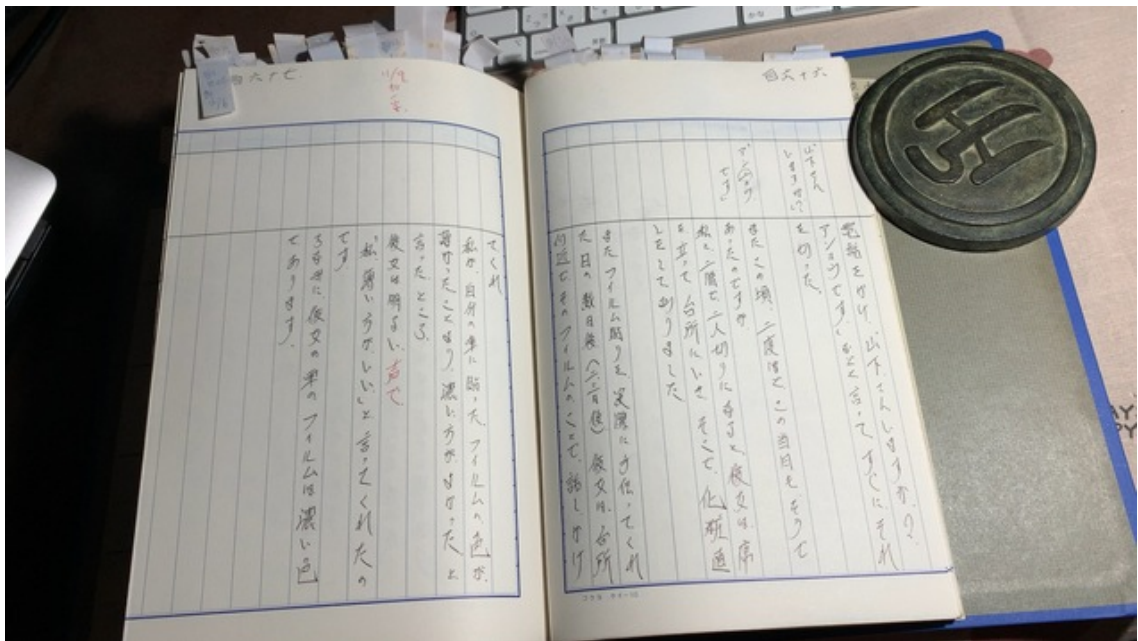 四六十六
山下さん
いますか?
電話をかけ、山下さんいますか?
アンヨウです。などと言って、すぐに、それ
を切った。
またこの頃、二度ほど、この当日も、そうで
あったのですが、
私と二階で、二人切りになると、彼女は、席
を立って、台所にいき、そこで、化粧直
しをしておりました
またフィルム貼りを、実際に手伝ってくれ
た日の数日後(二、三日後)彼女は、台所
付近で、そのフィルムのことで、話しかけ
四六十七
てくれ
私が、自分の車に貼った、フィルムの色が、
薄かったことより、濃い方が、よかったと
言ったところ、
彼女は明るい、声で、
「私、薄い方がいい」と言ってくれたの
です。
ちなみに、彼女の車のフィルムは濃い色
であります。